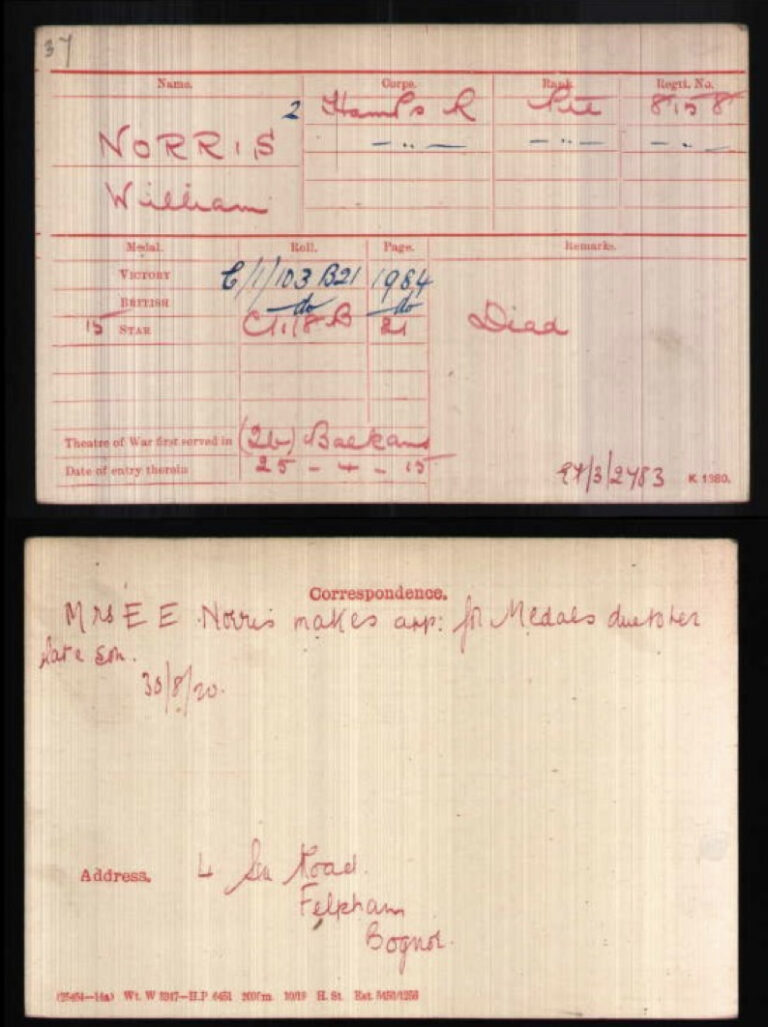 37
Name. Corps. Rank Regtl. No.
2 Hamps R Pte 8158
NORRIS — " — — " — — " —
William
Medal. Roll. Page. Remarks.
VICTORY C/1/103 B21 1984
BRITISH do do
15 STAR C/1/8 B 21 Died
Theatre of War first served in (2b) Balkans
Date of entry therein 25 - 4 - 15
K 1380.
Correspondence.
Mrs E E Norris makes app: for Medals due to her
late son.
30/8/20.
Address. 4 Sea Road.
Felpham
Bognor.
H. St.